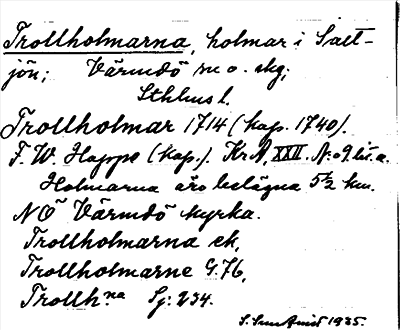 Trollholmarna, holmar i Salt-
jön; Värmdö sn o. skg;
Sthlms l.
Trollholmar 1714 (kop. 1740).
F. W. Happe (kop.). Kr A XXII. N:o 9 lit. a.
Holmarna äro belägna 5½ km.
NÖ Värmdö kyrka.
Trollholmarna ek,
Trollholmarne G. 76,
Trollh:na Sj. 234.
1935.